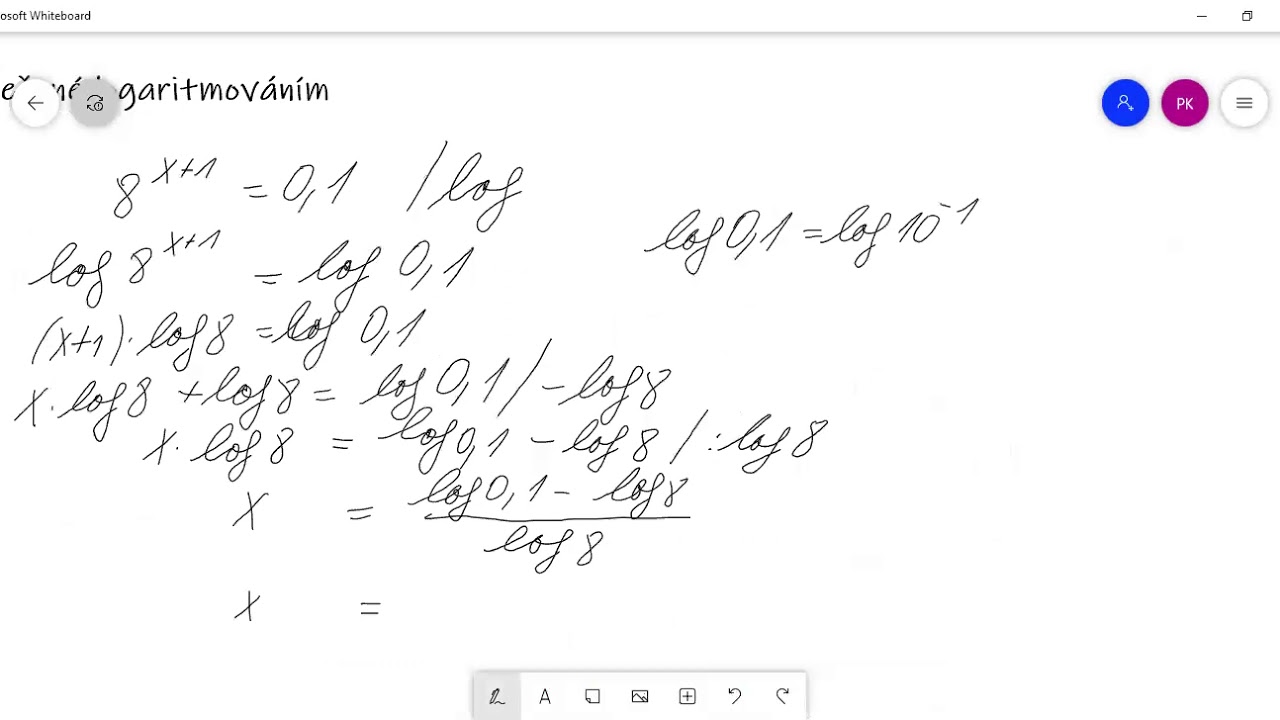 osoft Whiteboard
garitmováním
PK
8^(x+1) = 0,1 / log
log 8^(x+1) = log 0,1
log 0,1 = log 10^-1
(x+1) · log 8 = log 0,1
x · log 8 + log 8 = log 0,1 / - log 8
x · log 8 = log 0,1 - log 8 / : log 8
x = (log 0,1 - log 8) / log 8
x =
A